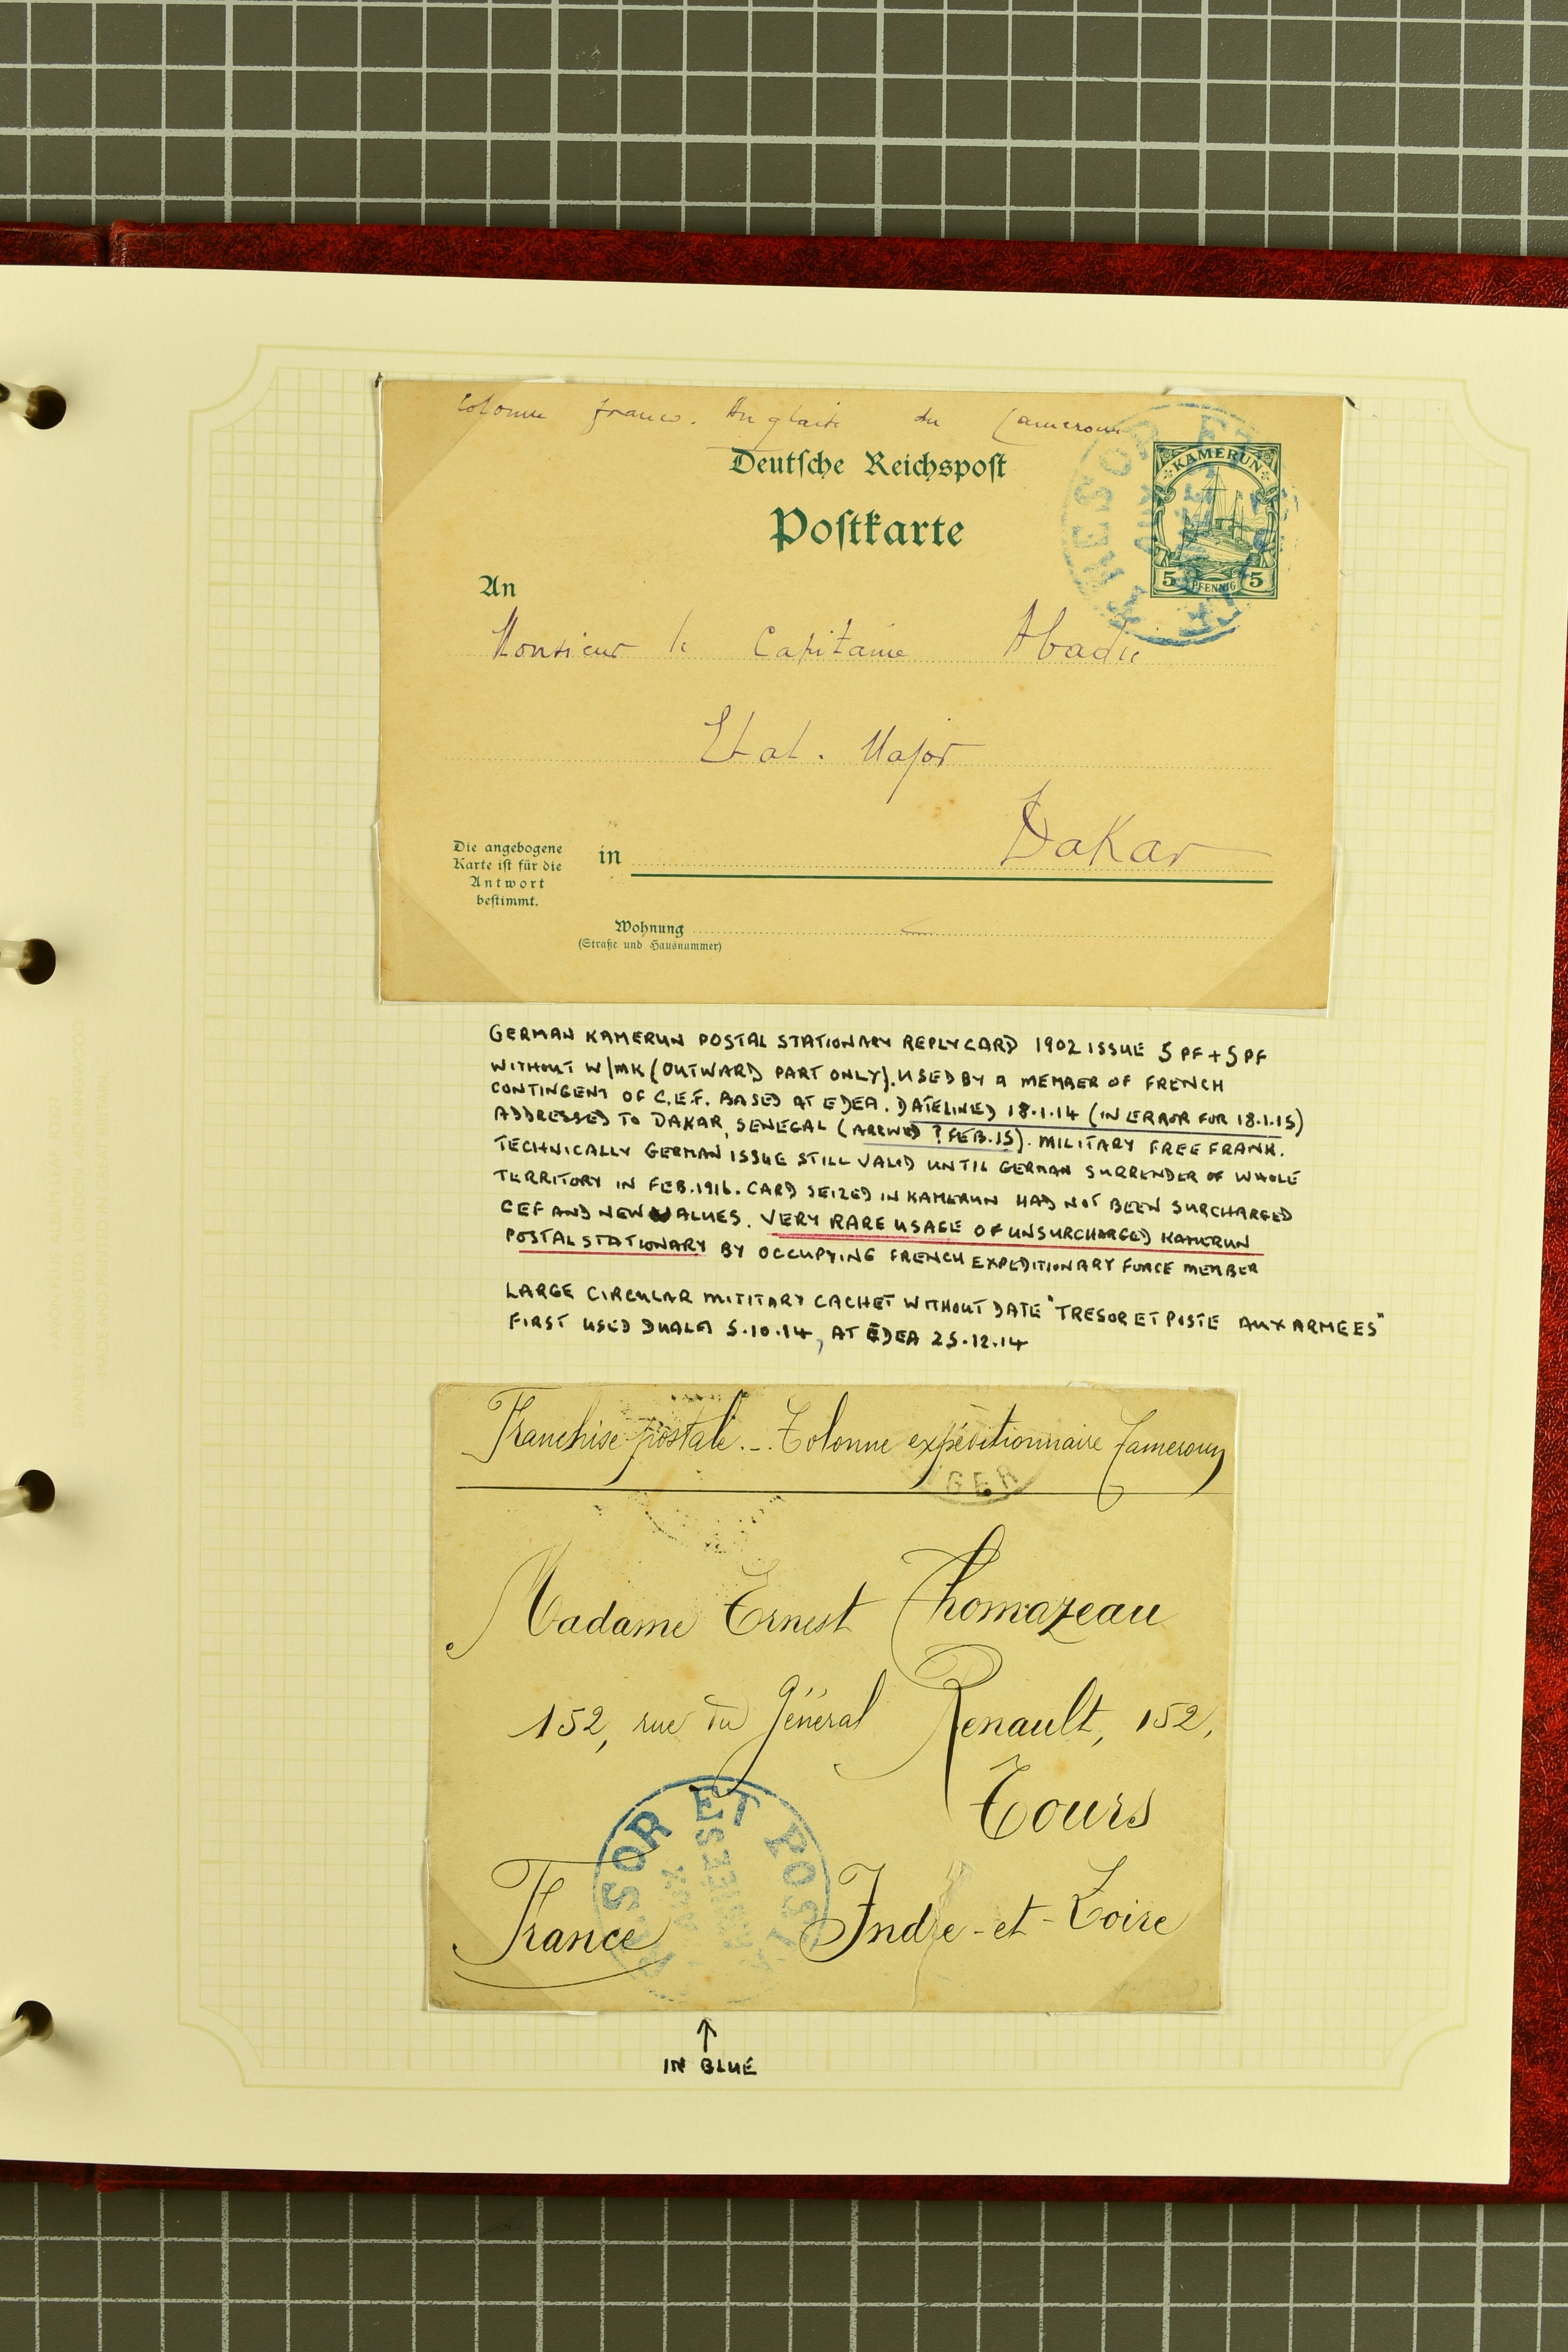 Colonne franco. Anglaise du Cameroun
Deutsche Reichspost
Postkarte
TRESOR ET
AUX
KAMERUN
5 PFENNIG 5
An
Monsieur le Capitaine Abadie
Etat. Major
Dakar
Die angebogene
Karte ist für die
Antwort
bestimmt.
in
Wohnung
(Straße und Hausnummer)
GERMAN KAMERUN POSTAL STATIONARY REPLYCARD 1902 ISSUE 5 PF + 5 PF
WITHOUT W/MK (OUTWARD PART ONLY). USED BY A MEMBER OF FRENCH
CONTINGENT OF C.E.F. BASED AT EDEA. DATELINED 18.1.14 (IN ERROR FOR 18.1.15)
ADDRESSED TO DAKAR, SENEGAL (ARRIVED ? FEB.15). MILITARY FREE FRANK.
TECHNICALLY GERMAN ISSUE STILL VALID UNTIL GERMAN SURRENDER OF WHOLE
TERRITORY IN FEB.1916. CARD SEIZED IN KAMERUN HAD NOT BEEN SURCHARGED
CEF AND NEW VALUES. VERY RARE USAGE OF UNSURCHARGED KAMERUN
POSTAL STATIONARY BY OCCUPYING FRENCH EXPEDITIONARY FORCE MEMBER
LARGE CIRCULAR MITITARY CACHET WITHOUT DATE "TRESOR ET POSTE AUX ARMEES"
FIRST USED DUALA 5.10.14, AT EDEA 25.12.14
Franchise postale. - Colonne expéditionnaire Cameroun
GER
Madame Ernest Thomazeau
152, rue du Général Renault, 152,
Tours
France Indre-et-Loire
TRESOR ET POSTE
AUX
ARMEES
IN BLUE